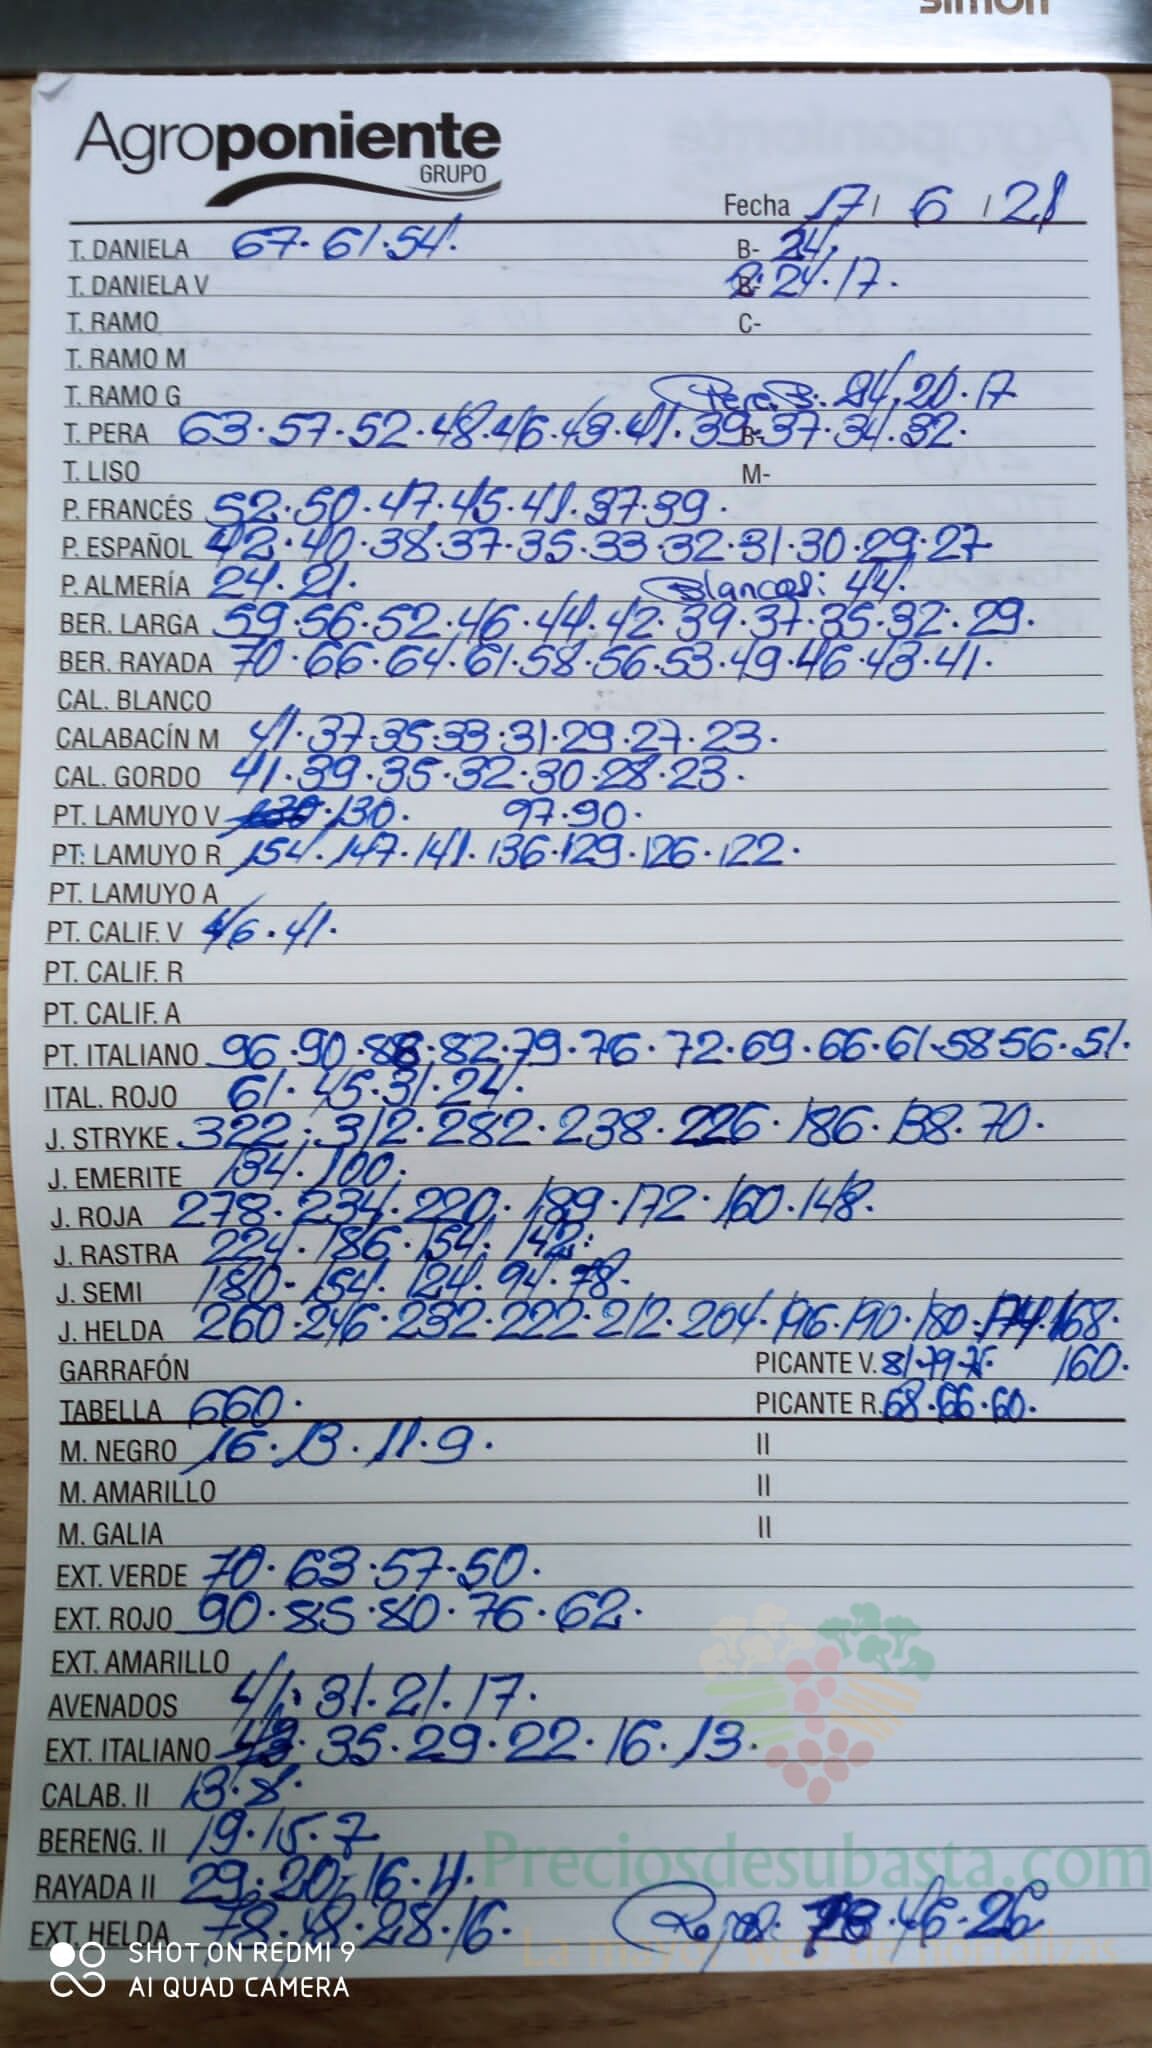 simon
Agroponiente
GRUPO
Fecha 17 / 6 / 21
T. DANIELA 67. 61. 54. B- 24.
T. DANIELA V B- 24. 17.
T. RAMO C-
T. RAMO M
T. RAMO G Pera B: 24. 20. 17
T. PERA 63. 57. 52. 48. 46. 43. 41. 39. B- 37. 34. 32.
T. LISO M-
P. FRANCÉS 52. 50. 47. 45. 41. 37. 39.
P. ESPAÑOL 42. 40. 38. 37. 35. 33. 32. 31. 30. 29. 27
P. ALMERÍA 24. 21. Blancos: 44.
BER. LARGA 59. 56. 52. 46. 44. 42. 39. 37. 35. 32. 29.
BER. RAYADA 70. 66. 64. 61. 58. 56. 53. 49. 46. 43. 41.
CAL. BLANCO
CALABACÍN M 41. 37. 35. 33. 31. 29. 27. 23.
CAL. GORDO 41. 39. 35. 32. 30. 28. 23.
PT. LAMUYO V 130. 97. 90.
PT. LAMUYO R 154. 147. 141. 136. 129. 126. 122.
PT. LAMUYO A
PT. CALIF. V 46. 41.
PT. CALIF. R
PT. CALIF. A
PT. ITALIANO 96. 90. 88. 82. 79. 76. 72. 69. 66. 61. 58. 56. 51.
ITAL. ROJO 61. 45. 31. 24.
J. STRYKE 322. 312. 282. 238. 226. 186. 138. 70.
J. EMERITE 134. 100.
J. ROJA 278. 234. 220. 189. 172. 160. 148.
J. RASTRA 224. 186. 154. 142.
J. SEMI 180. 154. 124. 94. 78.
J. HELDA 260. 246. 232. 222. 212. 204. 196. 190. 180. 174. 168.
GARRAFÓN PICANTE V. 81. 79. 160.
TABELLA 660. PICANTE R. 68. 66. 60.
M. NEGRO 16. 13. 11. 9. II
M. AMARILLO II
M. GALIA II
EXT. VERDE 70. 63. 57. 50.
EXT. ROJO 90. 85. 80. 76. 62.
EXT. AMARILLO
AVENADOS 41. 31. 21. 17.
EXT. ITALIANO 43. 35. 29. 22. 16. 13.
CALAB. II 13. 8.
BERENG. II 19. 15. 7
RAYADA II 29. 20. 16. 11.
EXT. HELDA 78. 48. 28. 16. Rojas. 78. 46. 26
Preciosdesubasta.com
La mayor web de hortalizas
SHOT ON REDMI 9
AI QUAD CAMERA